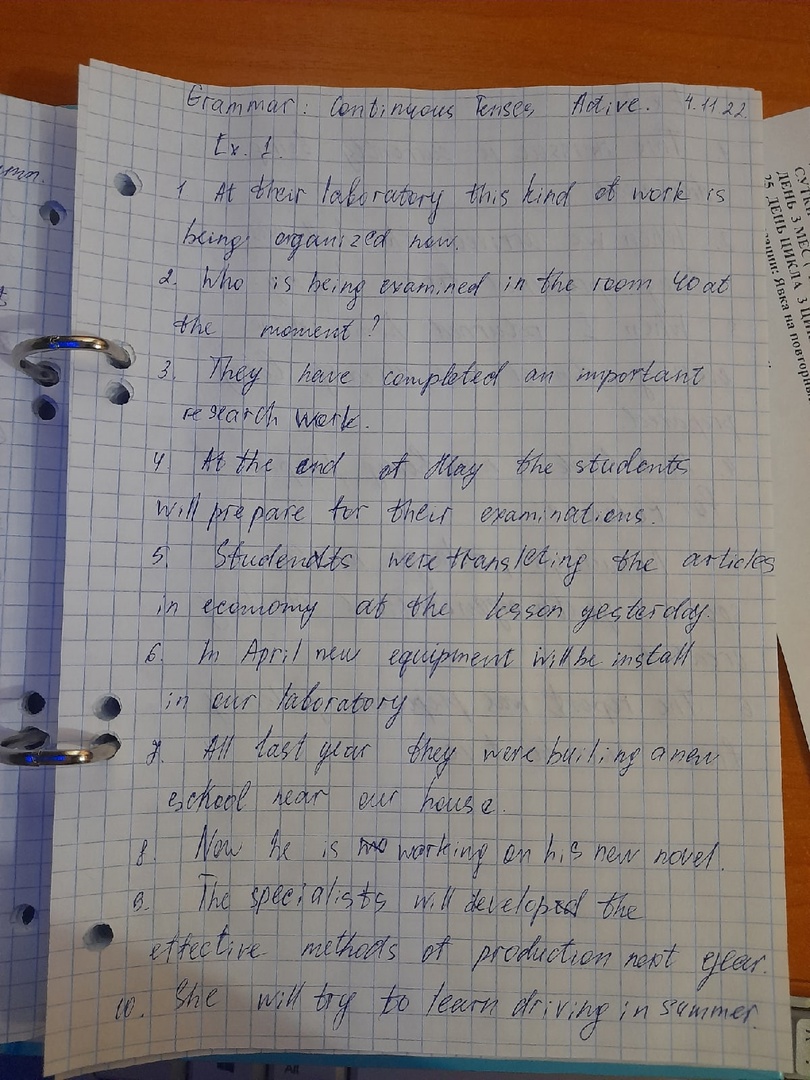 Grammar: Continuous Tenses Active. 4.11.22.
Ex. 1.
1 At their laboratory this kind of work is
being organized now.
2. Who is being examined in the room 40 at
the moment?
3. They have completed an important
research work.
4 At the end of May the students
will prepare for their examinations.
5. Studendts were transleting the articles
in economy at the lesson yesterday.
6. In April new equipment will be install
in our laboratory
7. All last year they were builing a new
school near our house.
8. Now he is working on his new novel.
9. The specialists will develop the
effective methods of production next year.
10. She will try to learn driving in summer.
СУТКИ
ДЕНЬ 3 МЕС
25 ДЕНЬ ЦИКЛА 3 ЦИ
Явка на повторный